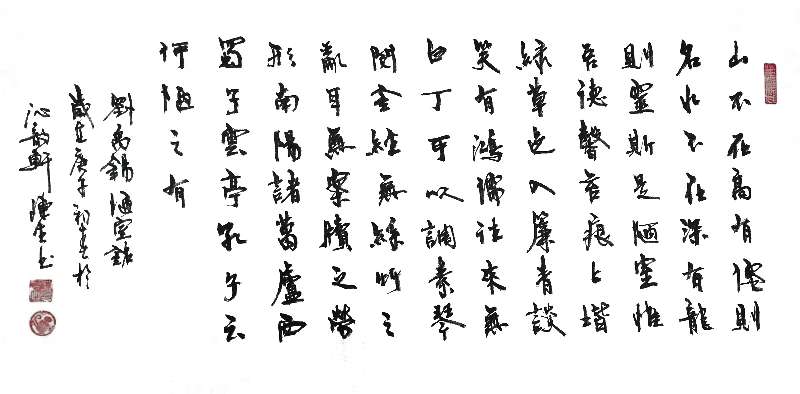 山不在高有僊則
名水不在深有龍
則靈斯是陋室惟
吾德馨苔痕上堦
綠草色入簾青談
笑有鴻儒往來無
白丁可以調素琴
閱金經無絲竹之
亂耳無案牘之勞
形南陽諸葛廬西
蜀子雲亭孔子云
何陋之有
劉禹錫陋室銘
歲在庚子初春於
沁韵軒